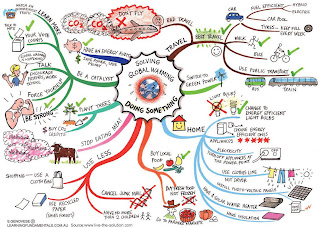 SOLVING
GLOBAL WARMING
DOING SOMETHING
LEARN
TALK
BE A CATALYST
FORCE YOURSELF
BE STRONG
PLANT TREES
BUY CO2
CREDITS
STOP EATING MEAT
USE LESS
SHOPPING - USE A
CLOTH BAG
USE RECYCLED
PAPER
(SAVES FOREST)
CANCEL JUNK MAIL
HAVE NO MORE
THAN 2 CHILDREN
BUY LOCAL
FOOD
BUY FRESH FOOD
NOT FROZEN
GO TO FARMERS MARKETS
HOME
SWITCH TO
GREEN POWER
LIGHT BULBS
CHANGE TO
ENERGY EFFICIENT
LIGHT BULBS
CHOOSE ENERGY
EFFICIENT ONES
APPLIANCES
ELECTRICITY
TURN OFF APPLIANCES AT
THE POWER POINT
USE CLOTHES LINE
NOT DRYER
INSTALL PHOTO-VOLTAIC PANELS
HAVE A SOLAR WATER HEATER
HAVE INSULATION
TRAVEL
DON'T FLY
LESS TRAVEL
CAR
FUEL EFFICIENT
HYBRID
ELECTRIC
CAR POOL
WALK
BIKE
USE PUBLIC TRANSPORT
BUS
TRAIN
YOUR VOTE
COUNTS
LEARNINGFUNDAMENTALS.COM.AU
Source: www.live-the-solution.com